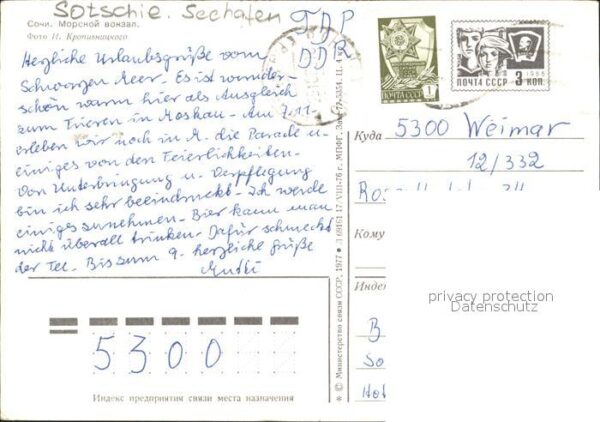 Sotschie. Seehafen
Сочи. Морской вокзал.
Фото И. Кропивницкого
ГДР
DDR
Herzliche Urlaubsgrüße vom
Schwarzen Meer. Es ist wunder-
schön warm hier als Ausgleich
zum Frieren in Moskau. Am 7.11.
erleben wir noch in M. die Parade u.
einiges von den Feierlichkeiten.
Von Unterbringung u. Verpflegung
bin ich sehr beeindruckt. Ich werde
einiges zunehmen. Bier kann man
nicht überall trinken. Dafür schmeckt
der Tee. Bis zum 9. herzliche Grüße
Mutti
ПОЧТА СССР 1
ПОЧТА СССР 3 КОП. 1966
Куда 5300 Weimar
12/332
Кому
Индекс
B
So
Hot
privacy protection
Datenschutz
5300
Индекс предприятия связи места назначения
* © Министерство связи СССР, 1977